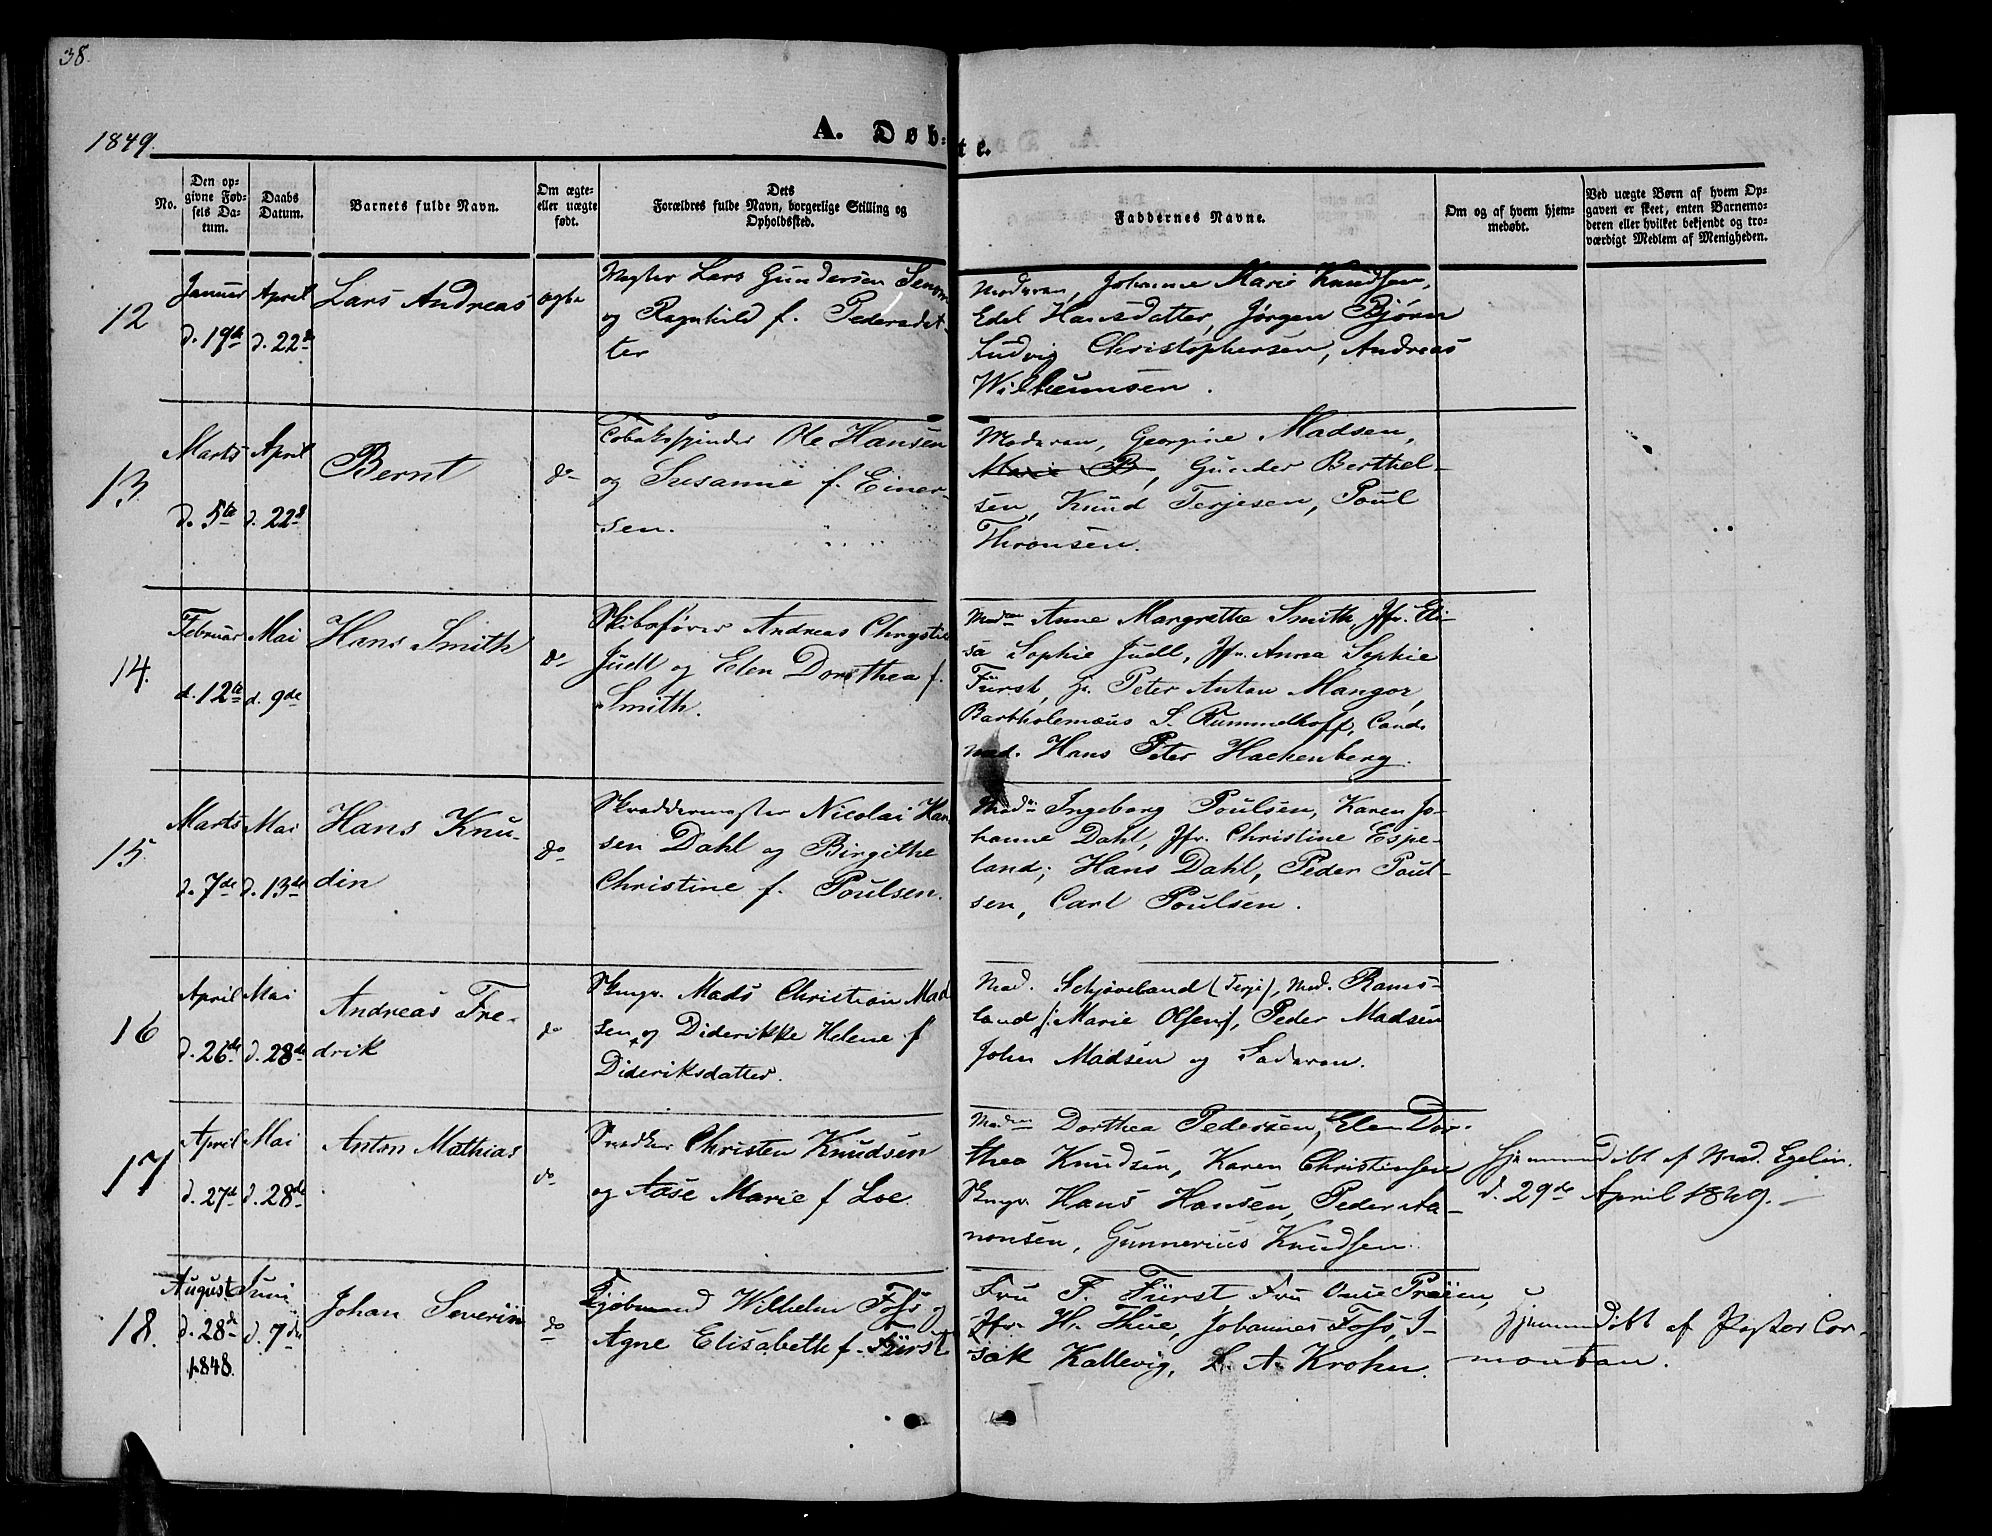 38.
1849.
A. Døbte.
No.
Den opgivne Fødsels Datum.
Daabs Datum.
Barnets fulde Navn.
Om ægte- eller uægte født.
Dets Forældres fulde Navn, borgerlige Stilling og Opholdssted.
Faddernes Navne.
Om og af hvem hjemmedøbt.
Ved uægte Børn af hvem Opgaven er skeet, enten Barnemoderen eller hvilket bekjendt og troværdigt Medlem af Menigheden.
12
Januar
d. 19de
April
d. 22de
Lars Andreas
ægte
Lars Gundersen
og Ragnhild f. Pedersdat
ter
Moderen, Johanne Marie Knudsen,
Edel Hansdatter, Jørgen Bjørn
Ludvig Christophersen, Andreas
Wilhelmsen.
13
Marts
d. 5te
April
d. 22d
Bernt
do
Tobaksspinder Ole Hansen
og Susanne f. Einer-
sen.
Moderen, Georgine Madsen,
Marie B, Gunder Berthel-
sen, Knud Terjesen, Poul
Thronsen.
14.
Februar
d. 12te
Mai
d. 9de
Hans Smith
do
Skibsfører Andreas Chrystie
Juell og Elen Dorothea f.
Smith.
Mad Anne Margrethe Smith, Jfr. Eli-
sa Sophie Juell, Jfr. Anna Sophie
Fürst, Hr. Peter Anton Mangor,
Bartholemæus S. Rummelhoff, Cand.
med. Hans Peter Hackenberg.
15.
Marts
d. 7de
Mai
d. 13de
Hans Knu-
din
do
Skreddermester Nicolai Han
sen Dahl og Birgithe
Christine f. Poulsen.
Mad Ingeborg Poulsen, Karen Jo-
hanne Dahl, Jfr. Christine Espe-
land; Hans Dahl, Peder Poul-
sen, Carl Poulsen.
16
April
d. 26de
Mai
d. 28de
Andreas Fre-
drik
do
Skmgr. Mads Christian Mad
sen og Diderikke Helene f
Dideriksdatter.
Mad. Schjøveland (Terje), Mad. Rams-
land /: Marie Olsen /, Peder Madsen
John Madsen og Faderen.
17
April
d. 27d
Mai
d. 28de
Anton Mathias
do
Snedker Christen Knudsen
og Aase Marie f Loe.
Mad Dorthea Pedersen, Elen Dor-
thea Knudsen, Karen Christensen
Skmgr. Hans Hansen, Peder Aa-
nonsen, Gunnerius Knudsen.
Hjemmedøbt af Mad. Egelin.
d. 29de April 1849.
18.
August
d. 28de
1848.
Juni
d. 7de
Johan Severin
do
Kjøbmand Wilhelm Foss og
Agne Elisabeth f. Fürst
Fru F. Fürst Fru
Jfr. H. Thue, Johannes Foss, I-
sak Kallevig, L. A. Krohn.
Hjemmedøbt af Pastor Cor-
montan.